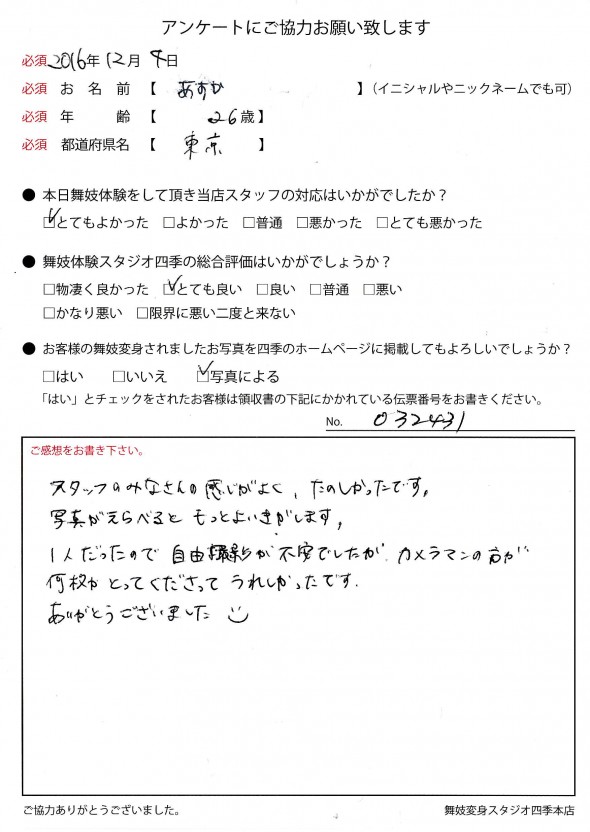 アンケートにご協力お願い致します
必須 2016年 12月 4日
必須 お 名 前 【 あすか 】（イニシャルやニックネームでも可）
必須 年 齢 【 26歳】
必須 都道府県名 【 東京 】
● 本日舞妓体験をして頂き当店スタッフの対応はいかがでしたか？
☑とてもよかった □よかった □普通 □悪かった □とても悪かった
● 舞妓体験スタジオ四季の総合評価はいかがでしょうか？
□物凄く良かった ☑とても良い □良い □普通 □悪い
□かなり悪い □限界に悪い二度と来ない
● お客様の舞妓変身されましたお写真を四季のホームページに掲載してもよろしいでしょうか？
□はい □いいえ ☑写真による
「はい」とチェックをされたお客様は領収書の下記にかかれている伝票番号をお書きください。
No. 032431
ご感想をお書き下さい。
スタッフのみなさんの感じがよく、たのしかったです。
写真がえらべると もっとよいきがします。
1人だったので 自由撮影が不安でしたが、カメラマンの方が
何枚か とってくださって うれしかったです.
ありがとうございました
ご協力ありがとうございました。
舞妓変身スタジオ四季本店